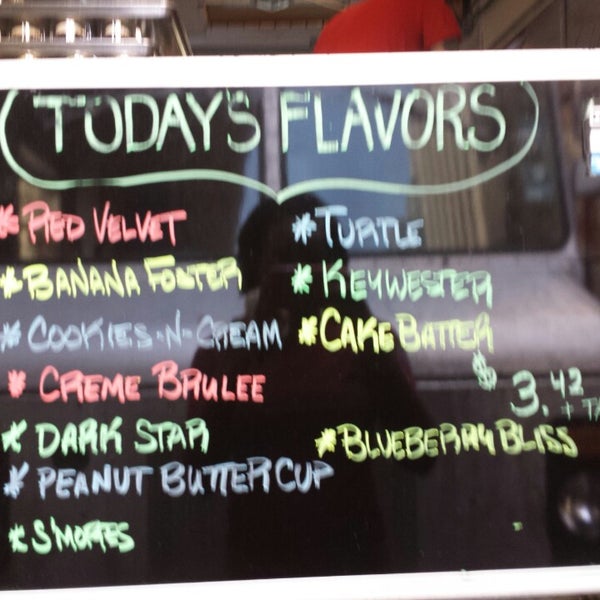 TODAY'S FLAVORS
* RED VELVET
* BANANA FOSTER
* COOKIES-N-CREAM
* CREME BRULEE
* DARK STAR
* PEANUT BUTTER CUP
* S'MORES
* TURTLE
* KEYWESTER
* CAKE BATTER
$3.42
+
* BLUEBERRY BLISS